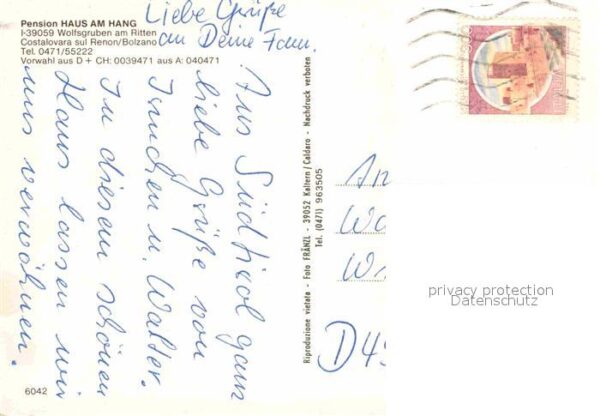 Pension HAUS AM HANG
I-39059 Wolfsgruben am Ritten
Costalovara sul Renon/Bolzano
Tel. 0471/55222
Vorwahl aus D + CH: 0039471 aus A: 040471
Liebe Grüße
an Deine Fam.
Aus Südtirol ganz
liebe Grüße von
u. Walter.
In diesem schönen
Haus lassen wir
uns verwöhnen.
Riproduzione vietata - Foto FRÄNZL - 39052 Kaltern/Caldaro - Nachdruck verboten
Tel. (0471) 963505
An
D 49
privacy protection
Datenschutz
6042